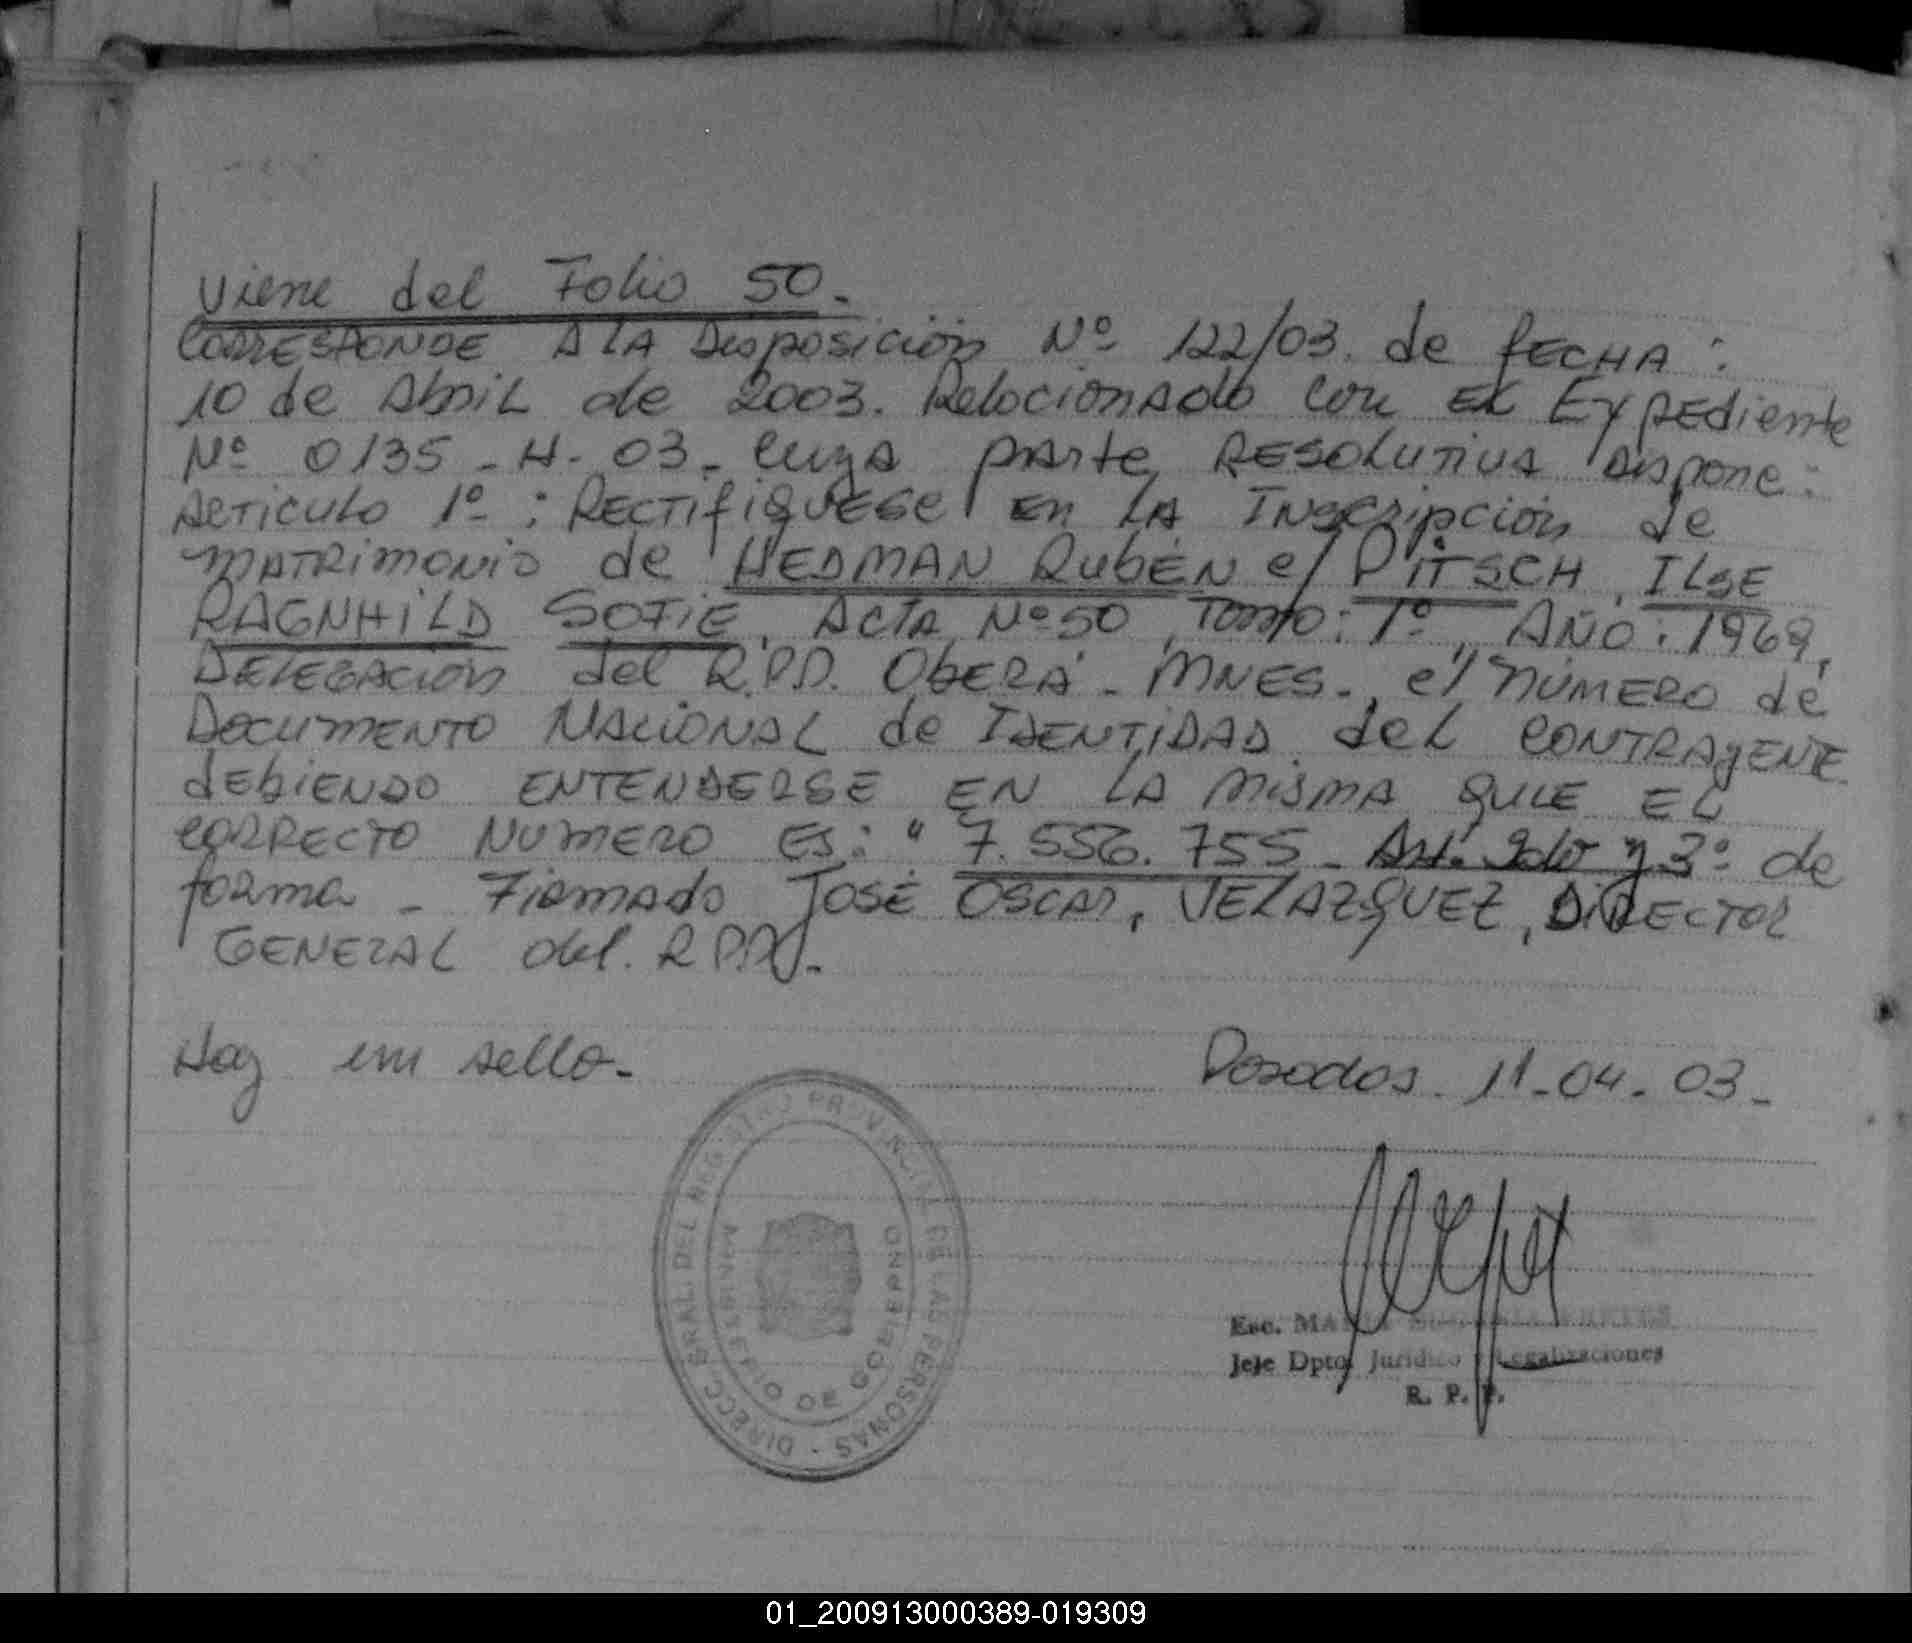 Viene del Folio 50.
CORRESPONDE A LA Disposición Nº 122/03. de fECHA:
10 de Abril de 2003. Relacionado con EL Expediente
Nº 0135-H-03- cuya parte RESOLUTIVA Dispone:
ARTICULO 1º: RECTIFIQUESE en LA Inscripción de
MATRIMONIO de HEDMAN RUBÉN c/ PITSCH, ILSE
RAGNHILD SOFIE, ACTA Nº 50, TOMO: 1º, AÑO: 1969,
DELEGACION del R.P.P. OBERÁ - MNES., el NÚMERO de
DOCUMENTO NACIONAL de IDENTIDAD del CONTRAYENTE
debiENDO ENTENDERSE EN LA MisMA QUE EL
CORRECTO NUMERO ES: "7.556.755- Art. 2do y 3º de
forma - Firmado JOSÉ OSCAR, VELAZQUEZ, DIRECTOR
GENERAL del. R.P.P.-
Hay un sello-
Posadas 11-04-03-
DIRECC. GRAL. DEL REGISTRO PROVINCIAL DE LAS PERSONAS
MINISTERIO DE GOBIERNO
Esc. MARIA
Jefe Dpto. Jurídico y Legalizaciones
R. P. P.
01_200913000389-019309